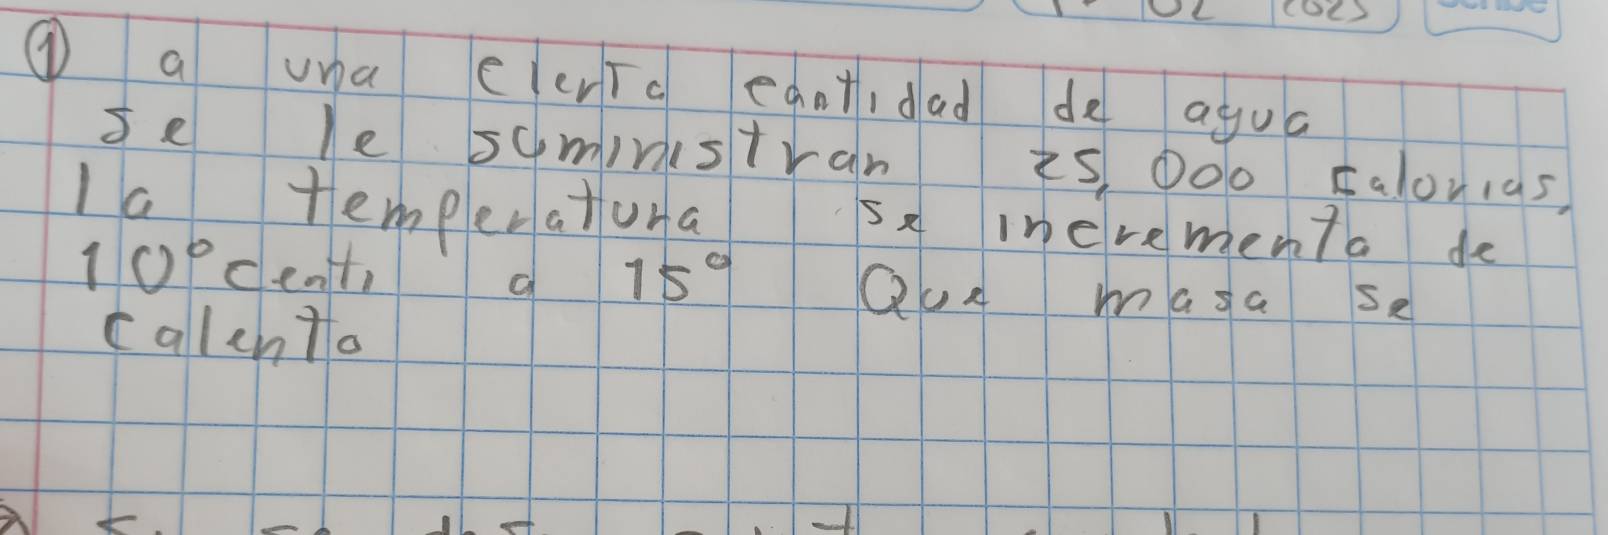 ① a una cierta cantidad de agua
se le suministran 25,000 calorias,
la temperatura se incrementa de
10° centi a 15° Que masa se
calento